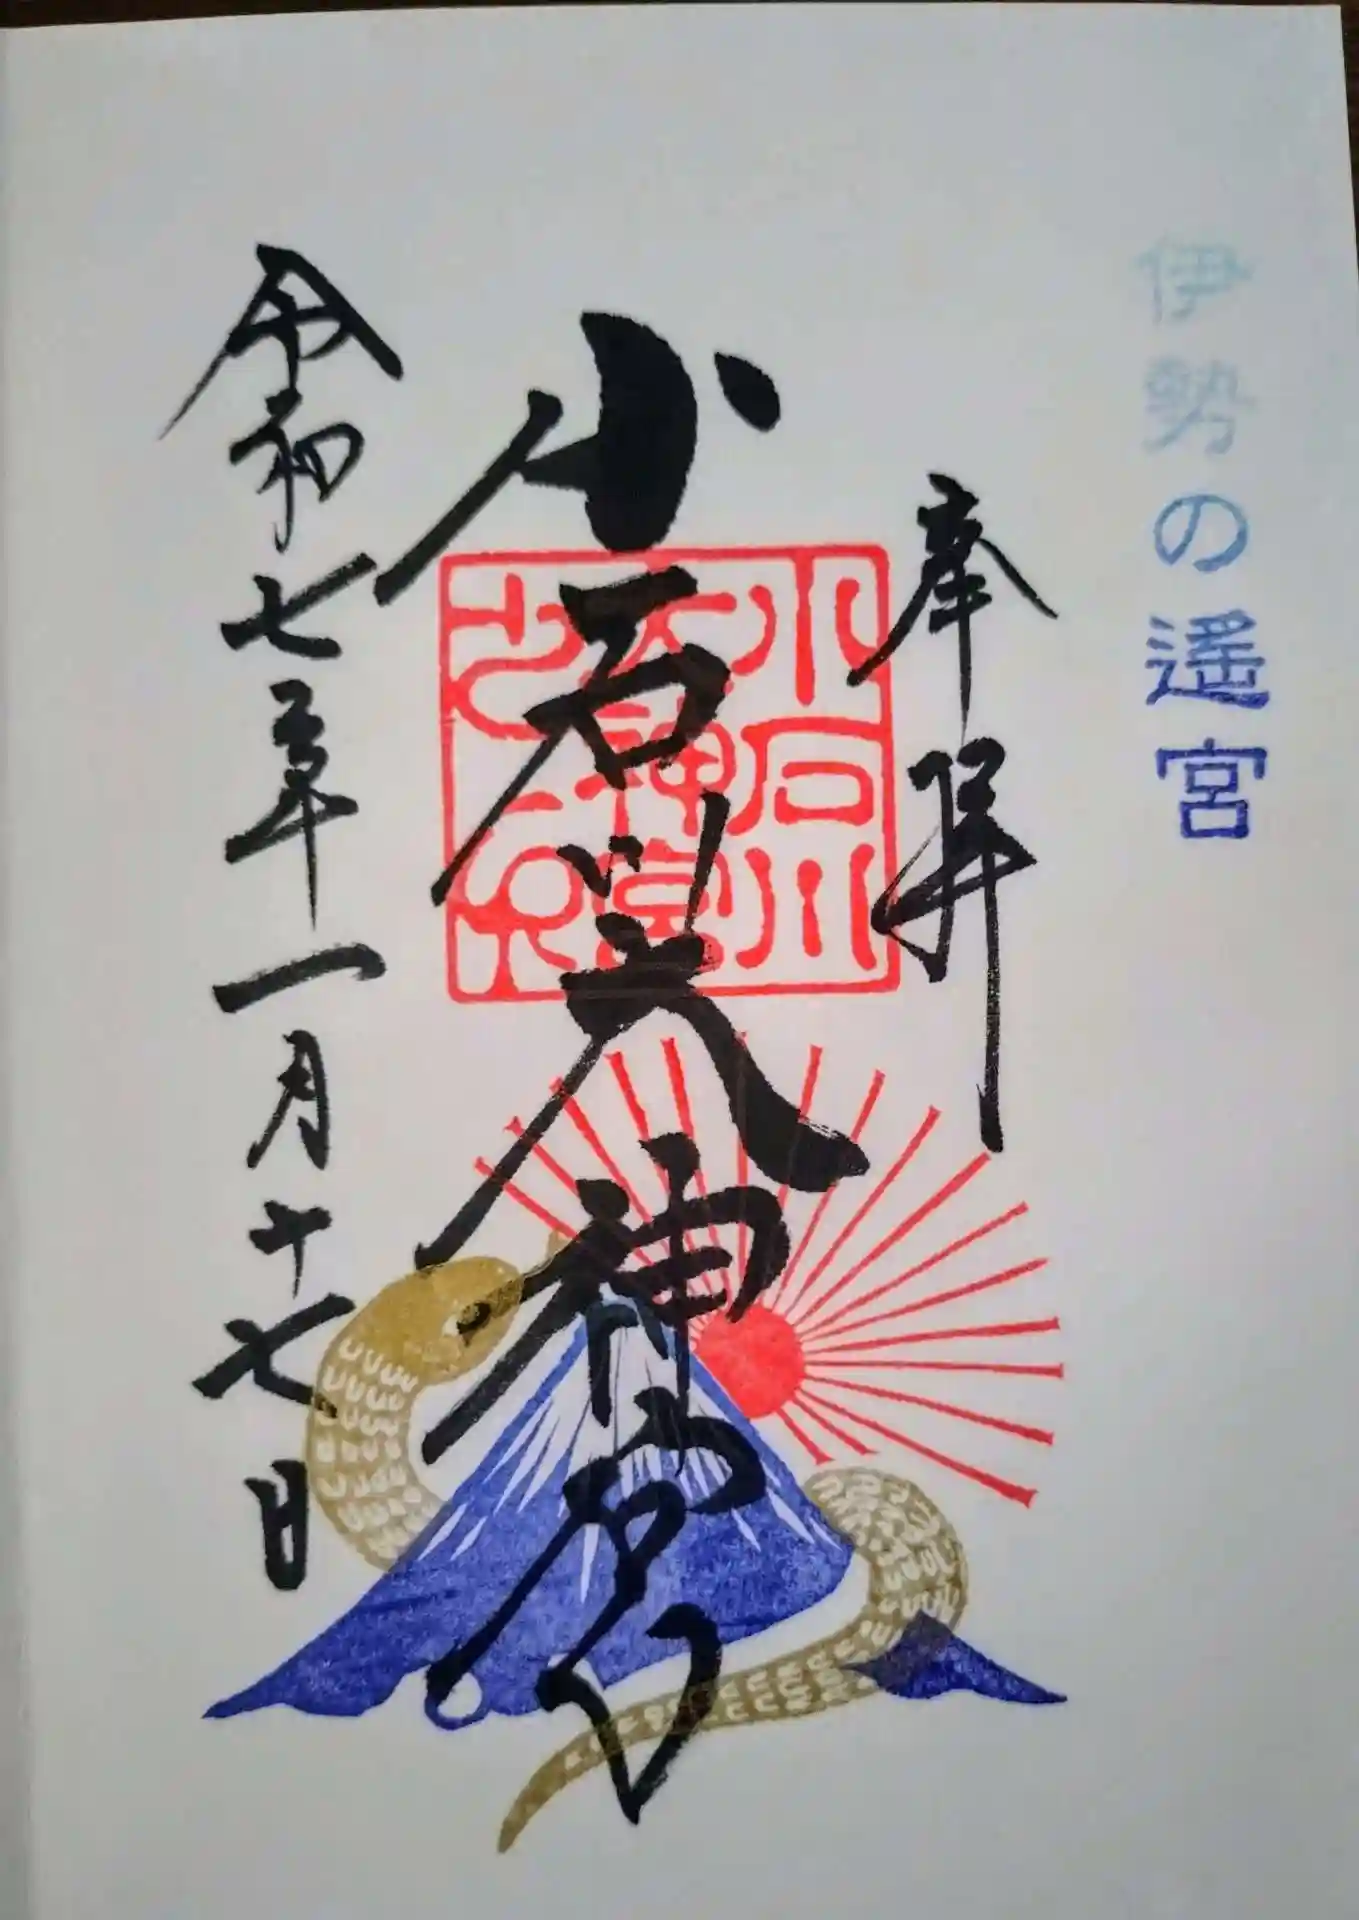 伊勢の遥宮
奉拝
小石川大神宮
小石川
大神宮
之印
令和七年一月十七日